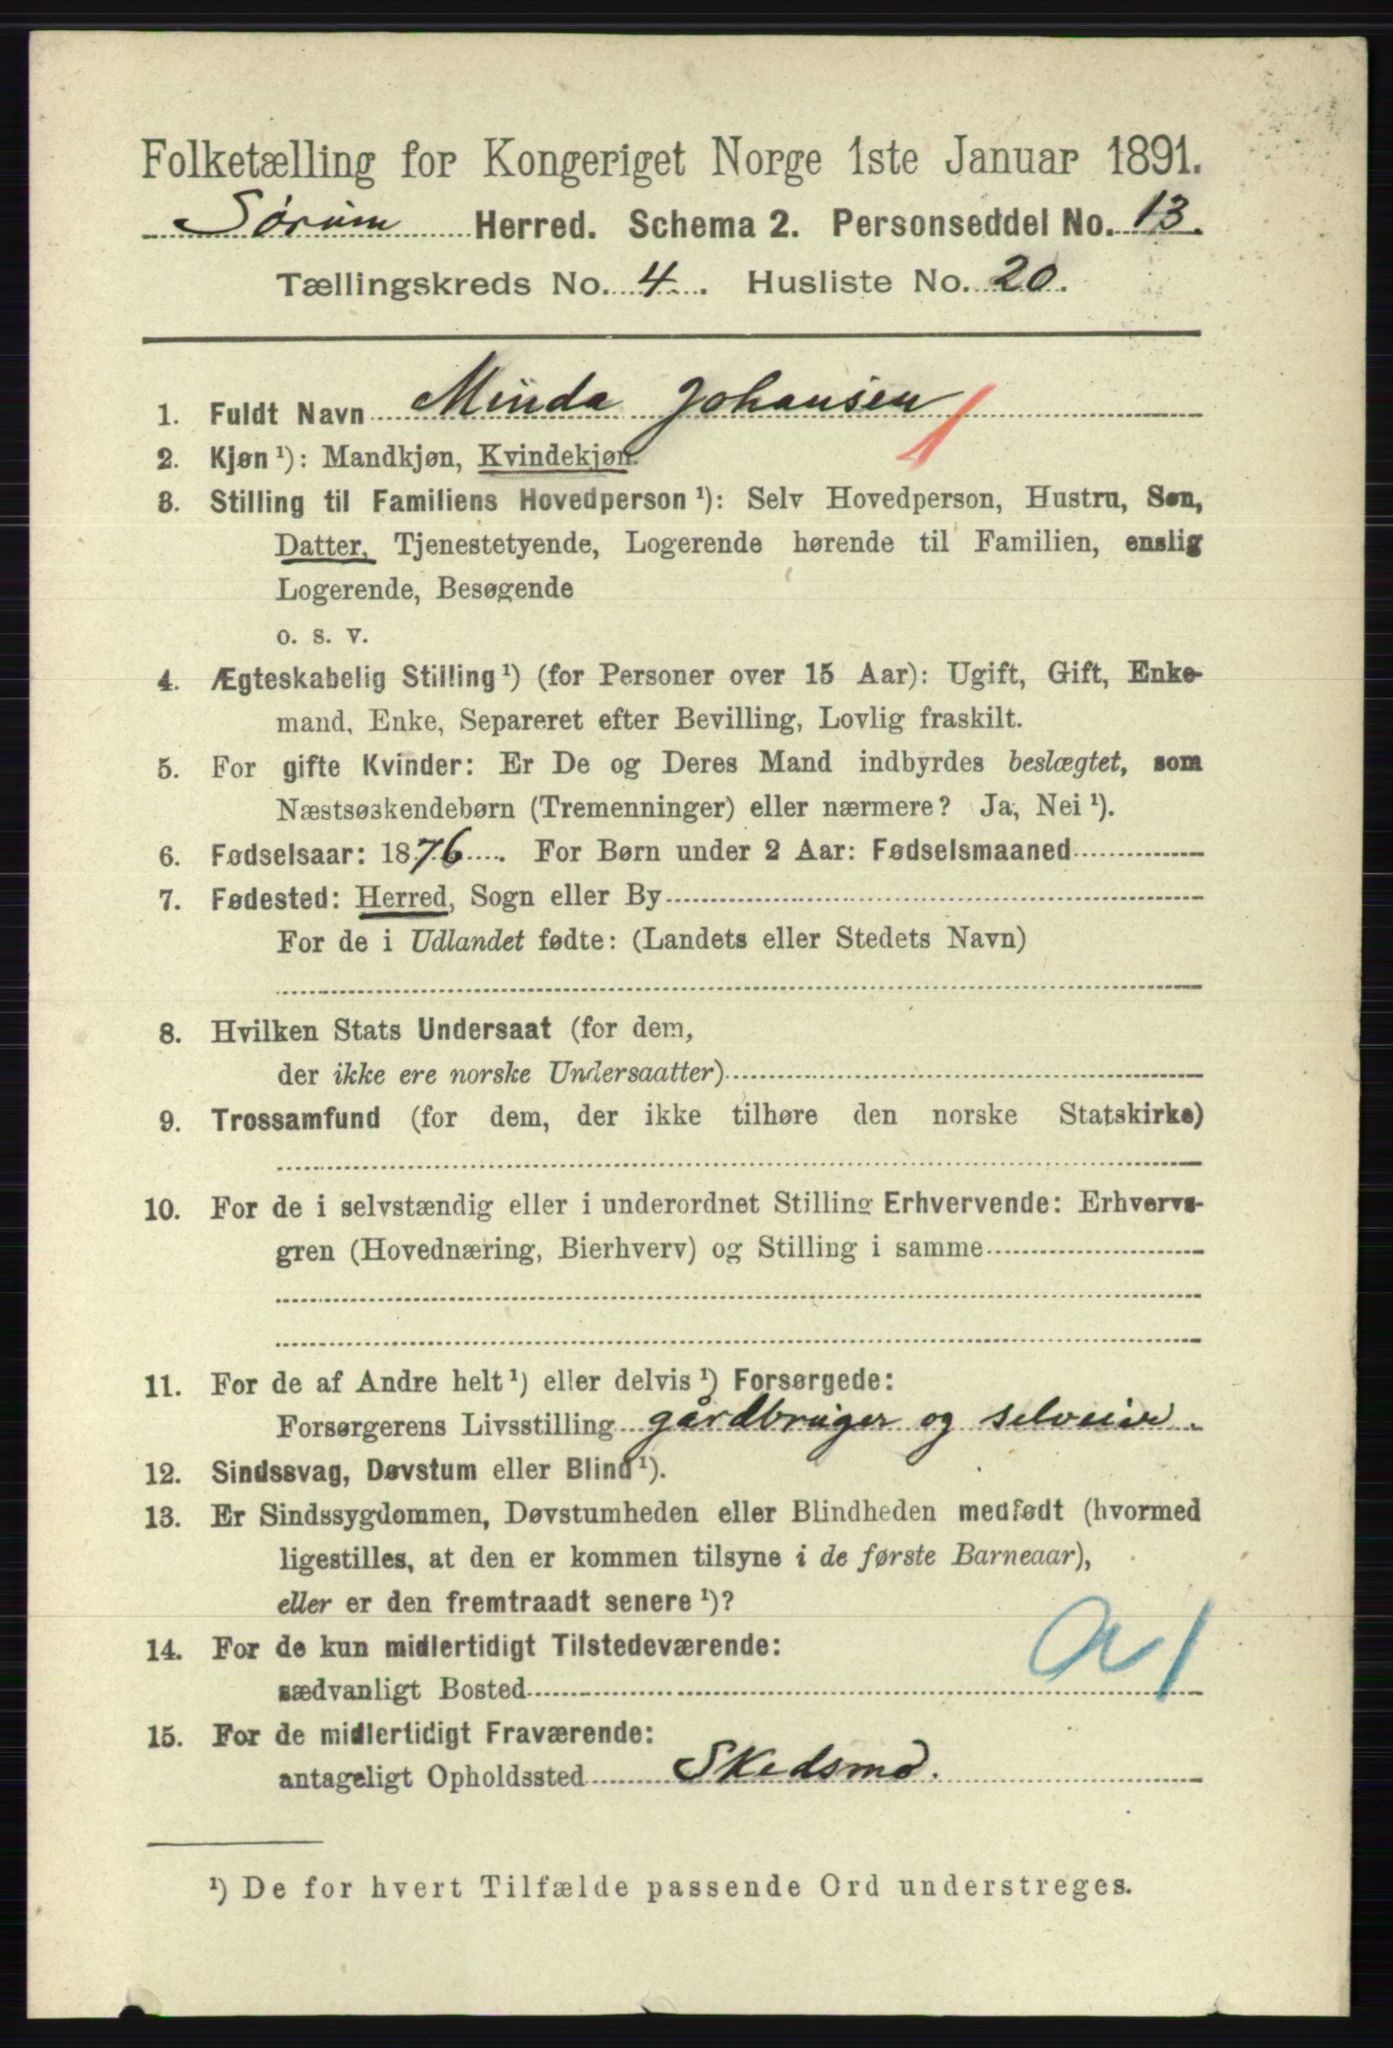 Folketælling for Kongeriget Norge 1ste Januar 1891.
Sørum Herred. Schema 2. Personseddel No. 13.
Tællingskreds No. 4. Husliste No. 20.
1. Fuldt Navn Minda Johansen
2. Kjøn ¹): Mandkjøn, Kvindekjøn.
3. Stilling til Familiens Hovedperson ¹): Selv Hovedperson, Hustru, Søn,
Datter, Tjenestetyende, Logerende hørende til Familien, enslig
Logerende, Besøgende
o. s. v.
4. Ægteskabelig Stilling ¹) (for Personer over 15 Aar): Ugift, Gift, Enke-
mand, Enke, Separeret efter Bevilling, Lovlig fraskilt.
5. For gifte Kvinder: Er De og Deres Mand indbyrdes beslægtet, som
Næstsøskendebørn (Tremenninger) eller nærmere? Ja, Nei ¹).
6. Fødselsaar: 1876. For Børn under 2 Aar: Fødselsmaaned
7. Fødested: Herred, Sogn eller By
For de i Udlandet fødte: (Landets eller Stedets Navn)
8. Hvilken Stats Undersaat (for dem,
der ikke ere norske Undersaatter)
9. Trossamfund (for dem, der ikke tilhøre den norske Statskirke)
10. For de i selvstændig eller i underordnet Stilling Erhvervende: Erhvervs-
gren (Hovednæring, Bierhverv) og Stilling i samme
11. For de af Andre helt ¹) eller delvis ¹) Forsørgede:
Forsørgerens Livsstilling gårdbruger og selveier.
12. Sindssvag, Døvstum eller Blind ¹).
13. Er Sindssygdommen, Døvstumheden eller Blindheden medfødt (hvormed
ligestilles, at den er kommen tilsyne i de første Barneaar),
eller er den fremtraadt senere ¹)?
14. For de kun midlertidigt Tilstedeværende:
sædvanligt Bosted
15. For de midlertidigt Fraværende:
antageligt Opholdssted Skedsmo.
¹) De for hvert Tilfælde passende Ord understreges.